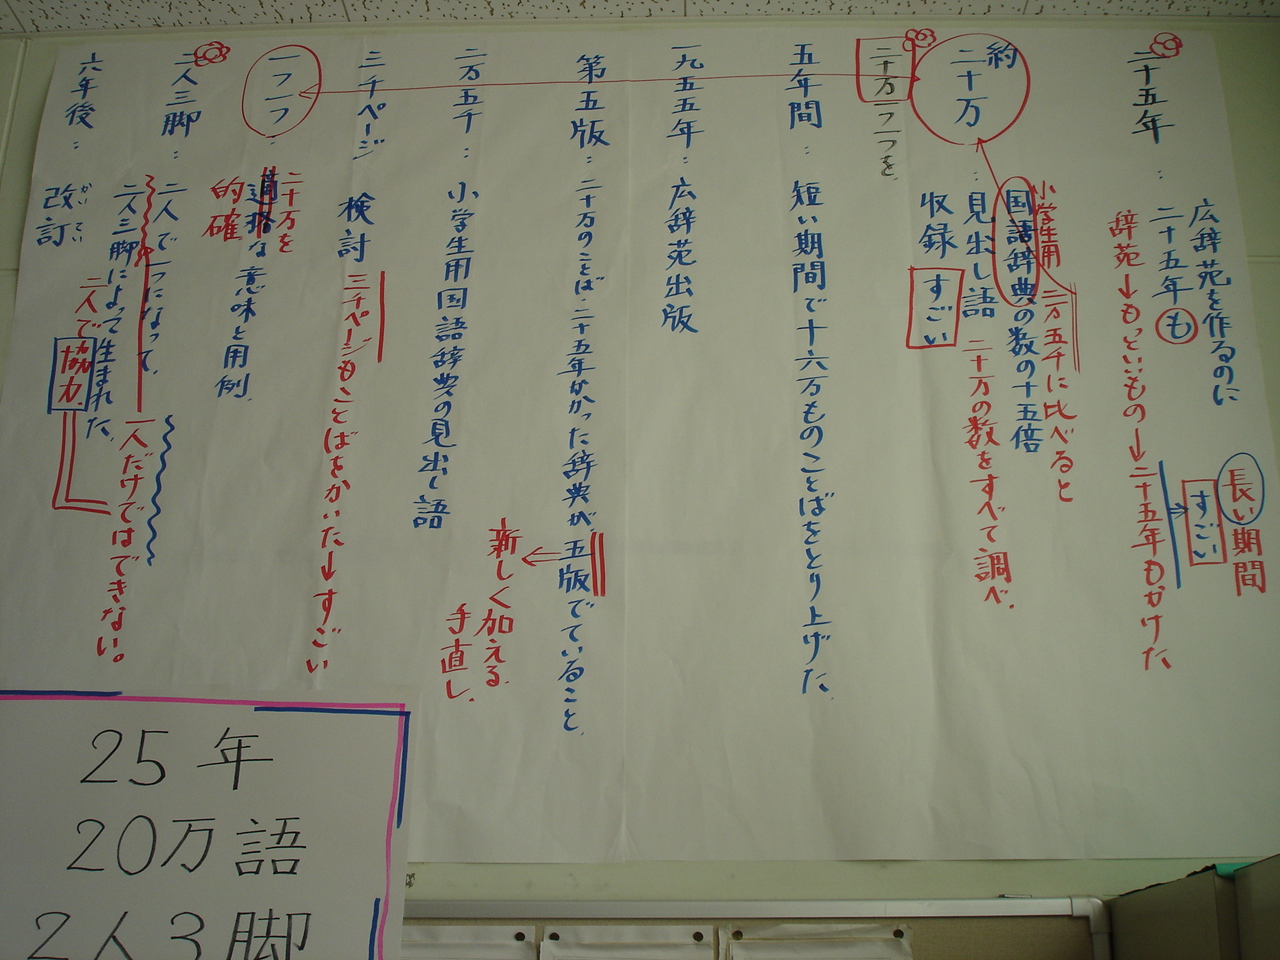 二十五年：
広辞苑を作るのに
二十五年も
長い期間
すごい
辞苑→もっといいもの→二十五年もかけた
約
二十万
：見出し語
収録
すごい
小学生用
国語辞典の数の十五倍
二万五千に比べると
二十万の数をすべて調べ、
二十万一つ一つを、
五年間：短い期間で十六万ものことばをとり上げた、
一九五五年：広辞苑出版
第五版：二十万のことば・二十五年かかった辞典が、五版でていること、
新しく加える、
手直し、
二万五千：小学生用国語辞典の見出し語
三千ページ　検討
三千ページもことばをかいた→すごい
一つ一つ：
二十万を
適格な意味と用例、
的確
二人三脚：二人で一つになって、
二人三脚によって生まれた、
一人だけではできない。
二人で協力、
六年後：改訂
かいてい
25年
20万語
2人3脚